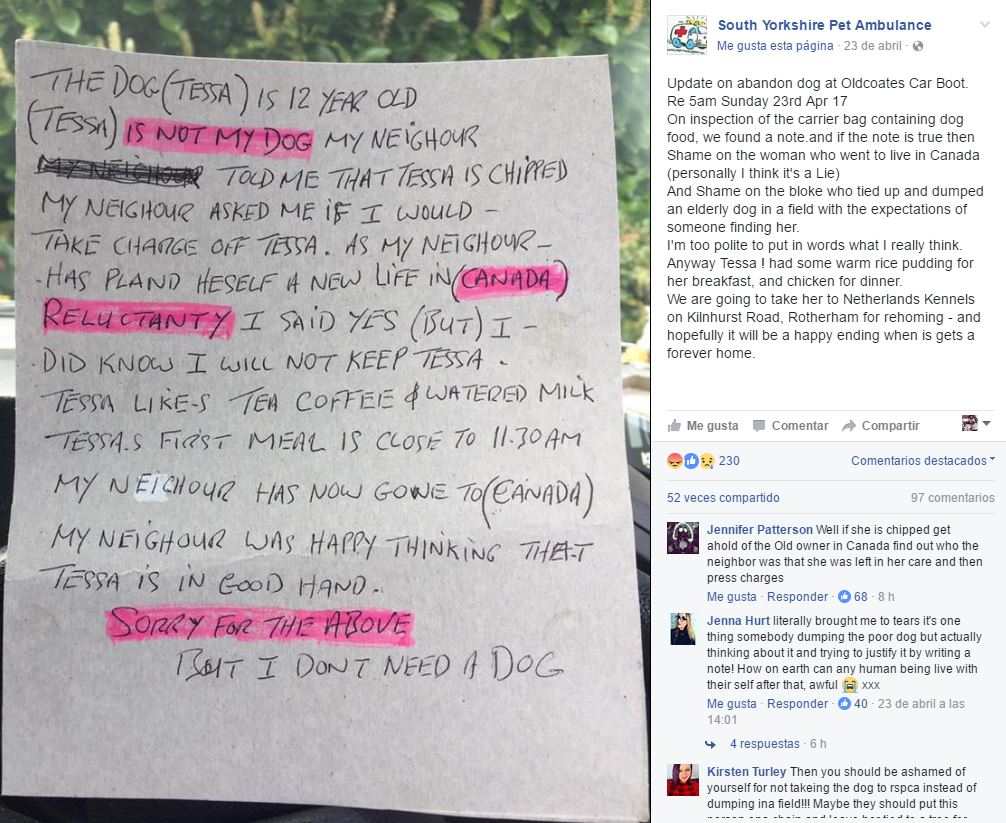 THE DOG (TESSA) IS 12 YEAR OLD
(TESSA) IS NOT MY DOG MY NEIGHOUR
MY NEIGHOUR TOLD ME THAT TESSA IS CHIPPED
MY NEIGHOUR ASKED ME IF I WOULD -
TAKE CHARGE OFF TESSA. AS MY NEIGHOUR -
- HAS PLAND HESELF A NEW LIFE IN (CANADA)
RELUCTANTY I SAID YES (BUT) I -
- DID KNOW I WILL NOT KEEP TESSA .
TESSA LIKE-S TEA COFFEE & WATERED MILK
TESSA.S FIRST MEAL IS CLOSE TO 11.30AM
MY NEIGHOUR HAS NOW GONE TO (CANADA)
MY NEIGHOUR WAS HAPPY THINKING THAT
TESSA IS IN GOOD HAND.
SORRY FOR THE ABOVE
BUT I DONT NEED A DOG
South Yorkshire Pet Ambulance
Me gusta esta página · 23 de abril ·
Update on abandon dog at Oldcoates Car Boot.
Re 5am Sunday 23rd Apr 17
On inspection of the carrier bag containing dog
food, we found a note.and if the note is true then
Shame on the woman who went to live in Canada
(personally I think it's a Lie)
And Shame on the bloke who tied up and dumped
an elderly dog in a field with the expectations of
someone finding her.
I'm too polite to put in words what I really think.
Anyway Tessa ! had some warm rice pudding for
her breakfast, and chicken for dinner.
We are going to take her to Netherlands Kennels
on Kilnhurst Road, Rotherham for rehoming - and
hopefully it will be a happy ending when is gets a
forever home.
Me gusta Comentar Compartir
230 Comentarios destacados
52 veces compartido 97 comentarios
Jennifer Patterson Well if she is chipped get
ahold of the Old owner in Canada find out who the
neighbor was that she was left in her care and then
press charges
Me gusta · Responder · 68 · 8 h
Jenna Hurt literally brought me to tears it's one
thing somebody dumping the poor dog but actually
thinking about it and trying to justify it by writing a
note! How on earth can any human being live with
their self after that, awful 😭 xxx
Me gusta · Responder · 40 · 23 de abril a las
14:01
4 respuestas · 6 h
Kirsten Turley Then you should be ashamed of
yourself for not takeing the dog to rspca instead of
dumping ina field!!! Maybe they should put this